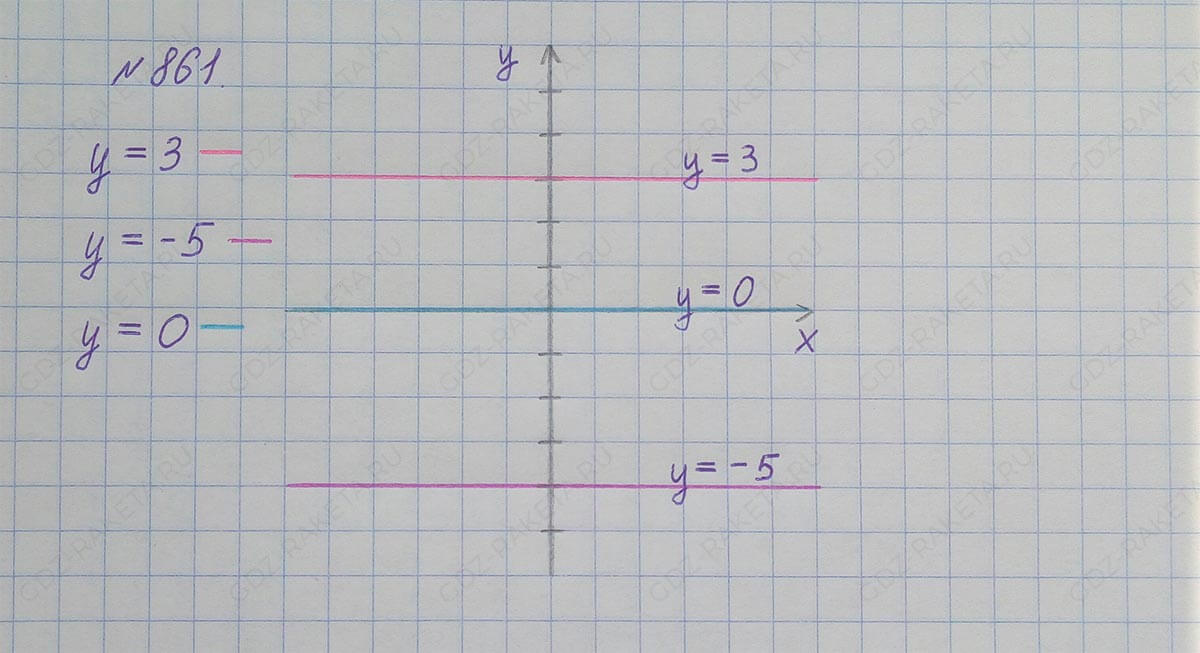 № 861.
y
y = 3
y = 3
y = -5
y = 0
y = 0
x
y = -5
GDZ-RAKETA.RU